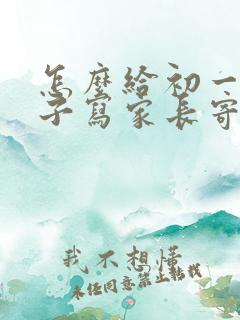 怎麼給初一
子寫家長寄
我不想懂
未经同意禁止转载